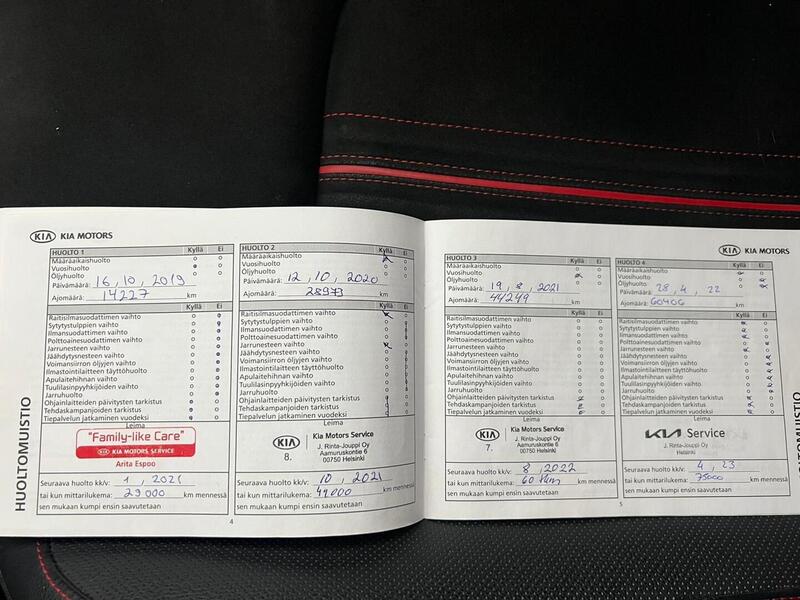 HUOLTOMUISTIO
KIA KIA MOTORS
HUOLTO 1 Kyllä Ei
Määräaikaishuolto
Vuosihuolto
Öljyhuolto
Päivämäärä: 16, 10, 2019
Ajomäärä: 14227 km
Kyllä Ei
Raitisilmasuodattimen vaihto
Sytytystulppien vaihto
Ilmansuodattimen vaihto
Polttoainesuodattimen vaihto
Jarrunesteen vaihto
Jäähdytysnesteen vaihto
Voimansiirron öljyjen vaihto
Ilmastointilaitteen täyttöhuolto
Apulaitehihnan vaihto
Tuulilasinpyyhkijöiden vaihto
Jarruhuolto
Ohjainlaitteiden päivitysten tarkistus
Tehdaskampanjoiden tarkistus
Tiepalvelun jatkaminen vuodeksi
Leima
"Family-like Care"
KIA KIA MOTORS SERVICE
Arita Espoo
Seuraava huolto kk/v: 1, 2021
tai kun mittarilukema: 29000 km mennessä
sen mukaan kumpi ensin saavutetaan
HUOLTO 2 Kyllä Ei
Määräaikaishuolto
Vuosihuolto
Öljyhuolto
Päivämäärä: 12, 10, 2020
Ajomäärä: 28973 km
Kyllä Ei
Raitisilmasuodattimen vaihto
Sytytystulppien vaihto
Ilmansuodattimen vaihto
Polttoainesuodattimen vaihto
Jarrunesteen vaihto
Jäähdytysnesteen vaihto
Voimansiirron öljyjen vaihto
Ilmastointilaitteen täyttöhuolto
Apulaitehihnan vaihto
Tuulilasinpyyhkijöiden vaihto
Jarruhuolto
Ohjainlaitteiden päivitysten tarkistus
Tehdaskampanjoiden tarkistus
Tiepalvelun jatkaminen vuodeksi
Leima
KIA Kia Motors Service
J. Rinta-Jouppi Oy
Aamuruskontie 6
8. 00750 Helsinki
Seuraava huolto kk/v: 10, 2021
tai kun mittarilukema: 49.000 km mennessä
sen mukaan kumpi ensin saavutetaan
4
KIA KIA MOTORS
HUOLTO 3 Kyllä Ei
Määräaikaishuolto
Vuosihuolto
Öljyhuolto
Päivämäärä: 19, 8, 2021
Ajomäärä: 44249 km
Kyllä Ei
Raitisilmasuodattimen vaihto
Sytytystulppien vaihto
Ilmansuodattimen vaihto
Polttoainesuodattimen vaihto
Jarrunesteen vaihto
Jäähdytysnesteen vaihto
Voimansiirron öljyjen vaihto
Ilmastointilaitteen täyttöhuolto
Apulaitehihnan vaihto
Tuulilasinpyyhkijöiden vaihto
Jarruhuolto
Ohjainlaitteiden päivitysten tarkistus
Tehdaskampanjoiden tarkistus
Tiepalvelun jatkaminen vuodeksi
Leima
KIA Kia Motors Service
J. Rinta-Jouppi Oy
Aamuruskontie 6
7. 00750 Helsinki
Seuraava huolto kk/v: 8, 2022
tai kun mittarilukema: 60 km mennessä
sen mukaan kumpi ensin saavutetaan
HUOLTO 4 Kyllä Ei
Määräaikaishuolto
Vuosihuolto
Öljyhuolto
Päivämäärä: 28, 4, 22
Ajomäärä: 60406 km
Kyllä Ei
Raitisilmasuodattimen vaihto
Sytytystulppien vaihto
Ilmansuodattimen vaihto
Polttoainesuodattimen vaihto
Jarrunesteen vaihto
Jäähdytysnesteen vaihto
Voimansiirron öljyjen vaihto
Ilmastointilaitteen täyttöhuolto
Apulaitehihnan vaihto
Tuulilasinpyyhkijöiden vaihto
Jarruhuolto
Ohjainlaitteiden päivitysten tarkistus
Tehdaskampanjoiden tarkistus
Tiepalvelun jatkaminen vuodeksi
Leima
KIA Service
J. Rinta-Jouppi Oy
Helsinki
Seuraava huolto kk/v: 4, 23
tai kun mittarilukema: 75000 km mennessä
sen mukaan kumpi ensin saavutetaan
5
HUOLTOMUISTIO